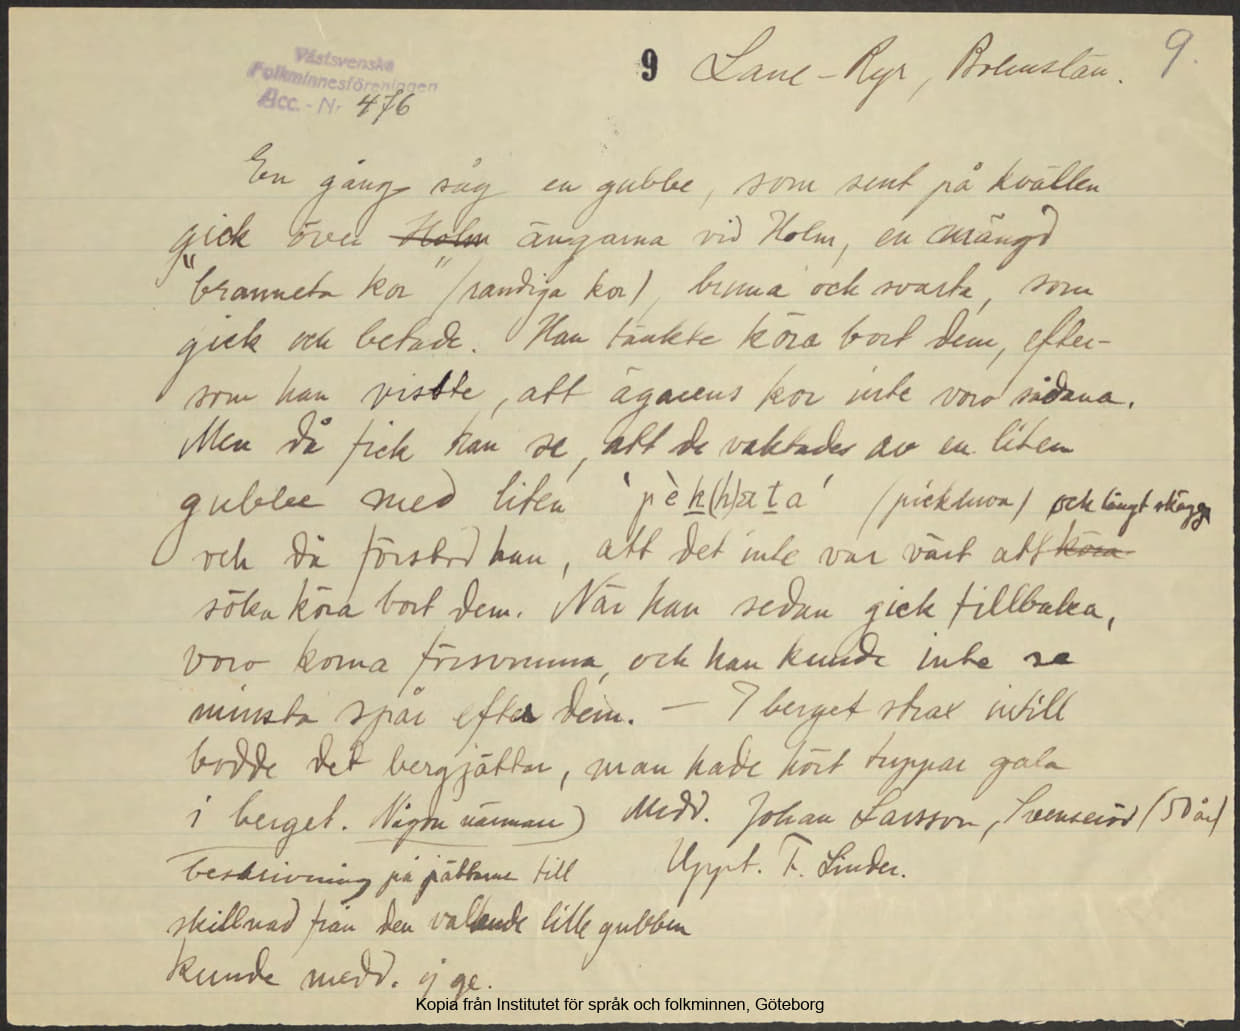 Västsvenska
Folkminnesföreningen
Acc. - Nr 476
9 Lane-Ryr, Bohuslän. 9.
En gång såg en gubbe, som sent på kvällen
gick över Holm ängarna vid Holm, en mängd
"branneta kor" (randiga kor), bruna och svarta, som
gick och betade. Han tänkte köra bort dem, efter-
som han visste, att ägarens kor inte voro sådana.
Men då fick han se, att de vaktades av en liten
gubbe med liten (pickluva) och långt skägg
och då förstod han, att det inte var värt att köra
söka köra bort dem. När han sedan gick tillbaka,
voro korna försvunna, och han kunde inte se
minsta spår efter dem. — I berget strax intill
bodde det bergjättar, man hade hört tuppar gala
i berget. Någon närmare) Medd. Johan Larsson, (50 år)
beskrivning på jättarne till Uppt. F. Linder.
skillnad från den vallande lille gubben
kunde medd. ej ge.
Kopia från Institutet för språk och folkminnen, Göteborg